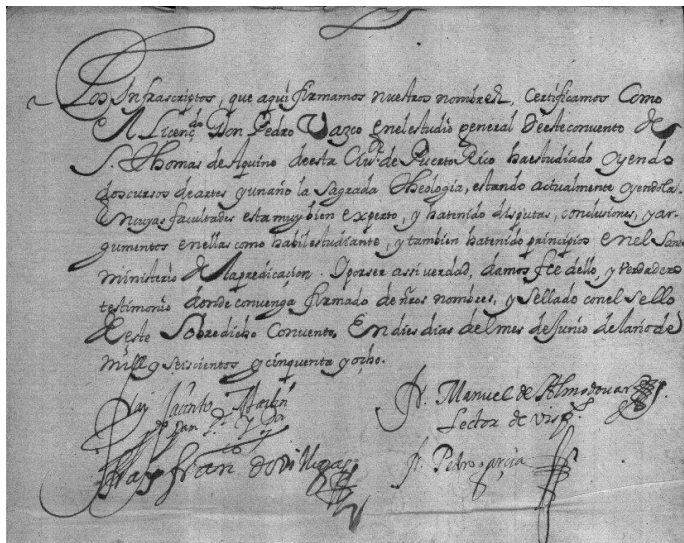 Los Infrascriptos, que aqui firmamos nuestros nombres, certificamos Como
el Licençdo Don Pedro Vazco en el estudio general de este convento de
S. Thomas de Aquino de esta Ciud. de Puerto Rico ha estudiado oyendo
dos cursos de artes y un año la Sagrada Theologia, estando actualmente oyendola.
En cuyas facultades esta muy bien experto, y ha tenido disputas, conclusiones, y ar-
gumentos en ellas como habil estudiante, y tambien ha tenido principios en el Santo
ministerio de la predicacion. Y por ser assi verdad, damos fee dello, y verdadero
testimonio donde convenga firmado de ñros nombres, y Sellado con el Sello
de este Sobredicho Convento, En dies dias del mes de Junio del año de
mill y seiscientos y cinquenta y ocho.
Fray Jacinto Martin
Fr. Manuel de Almodovar
Lector de visps.
Fray Fran
Fr. Pedro garçia